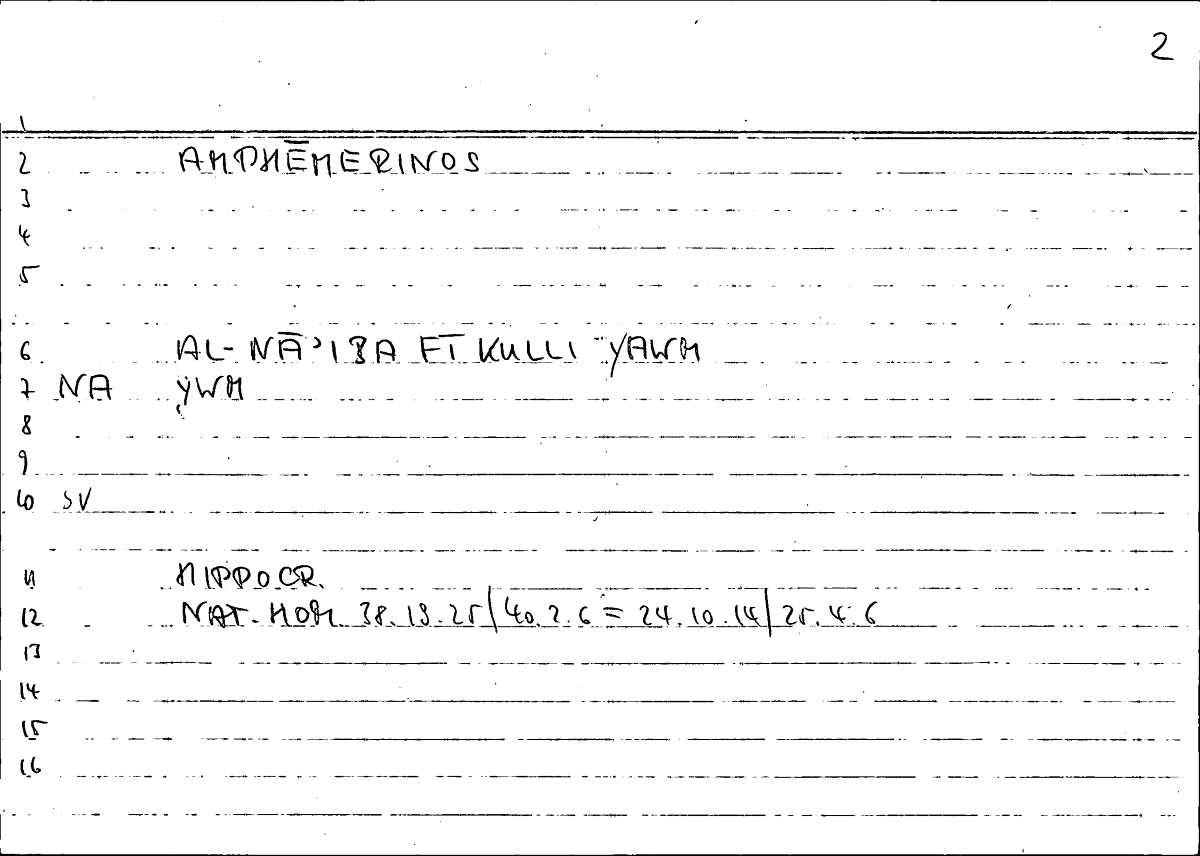 2
1
2 AMPHĒMERINOS
3
4
5
6 AL-NĀ'IBA FĪ KULLI YAWM
7 NA YWM
8
9
10 SV
11 HIPPOCR.
12 NAT. HOM 38.19.25/40.2.6 = 24.10.14/25.4.6
13
14
15
16